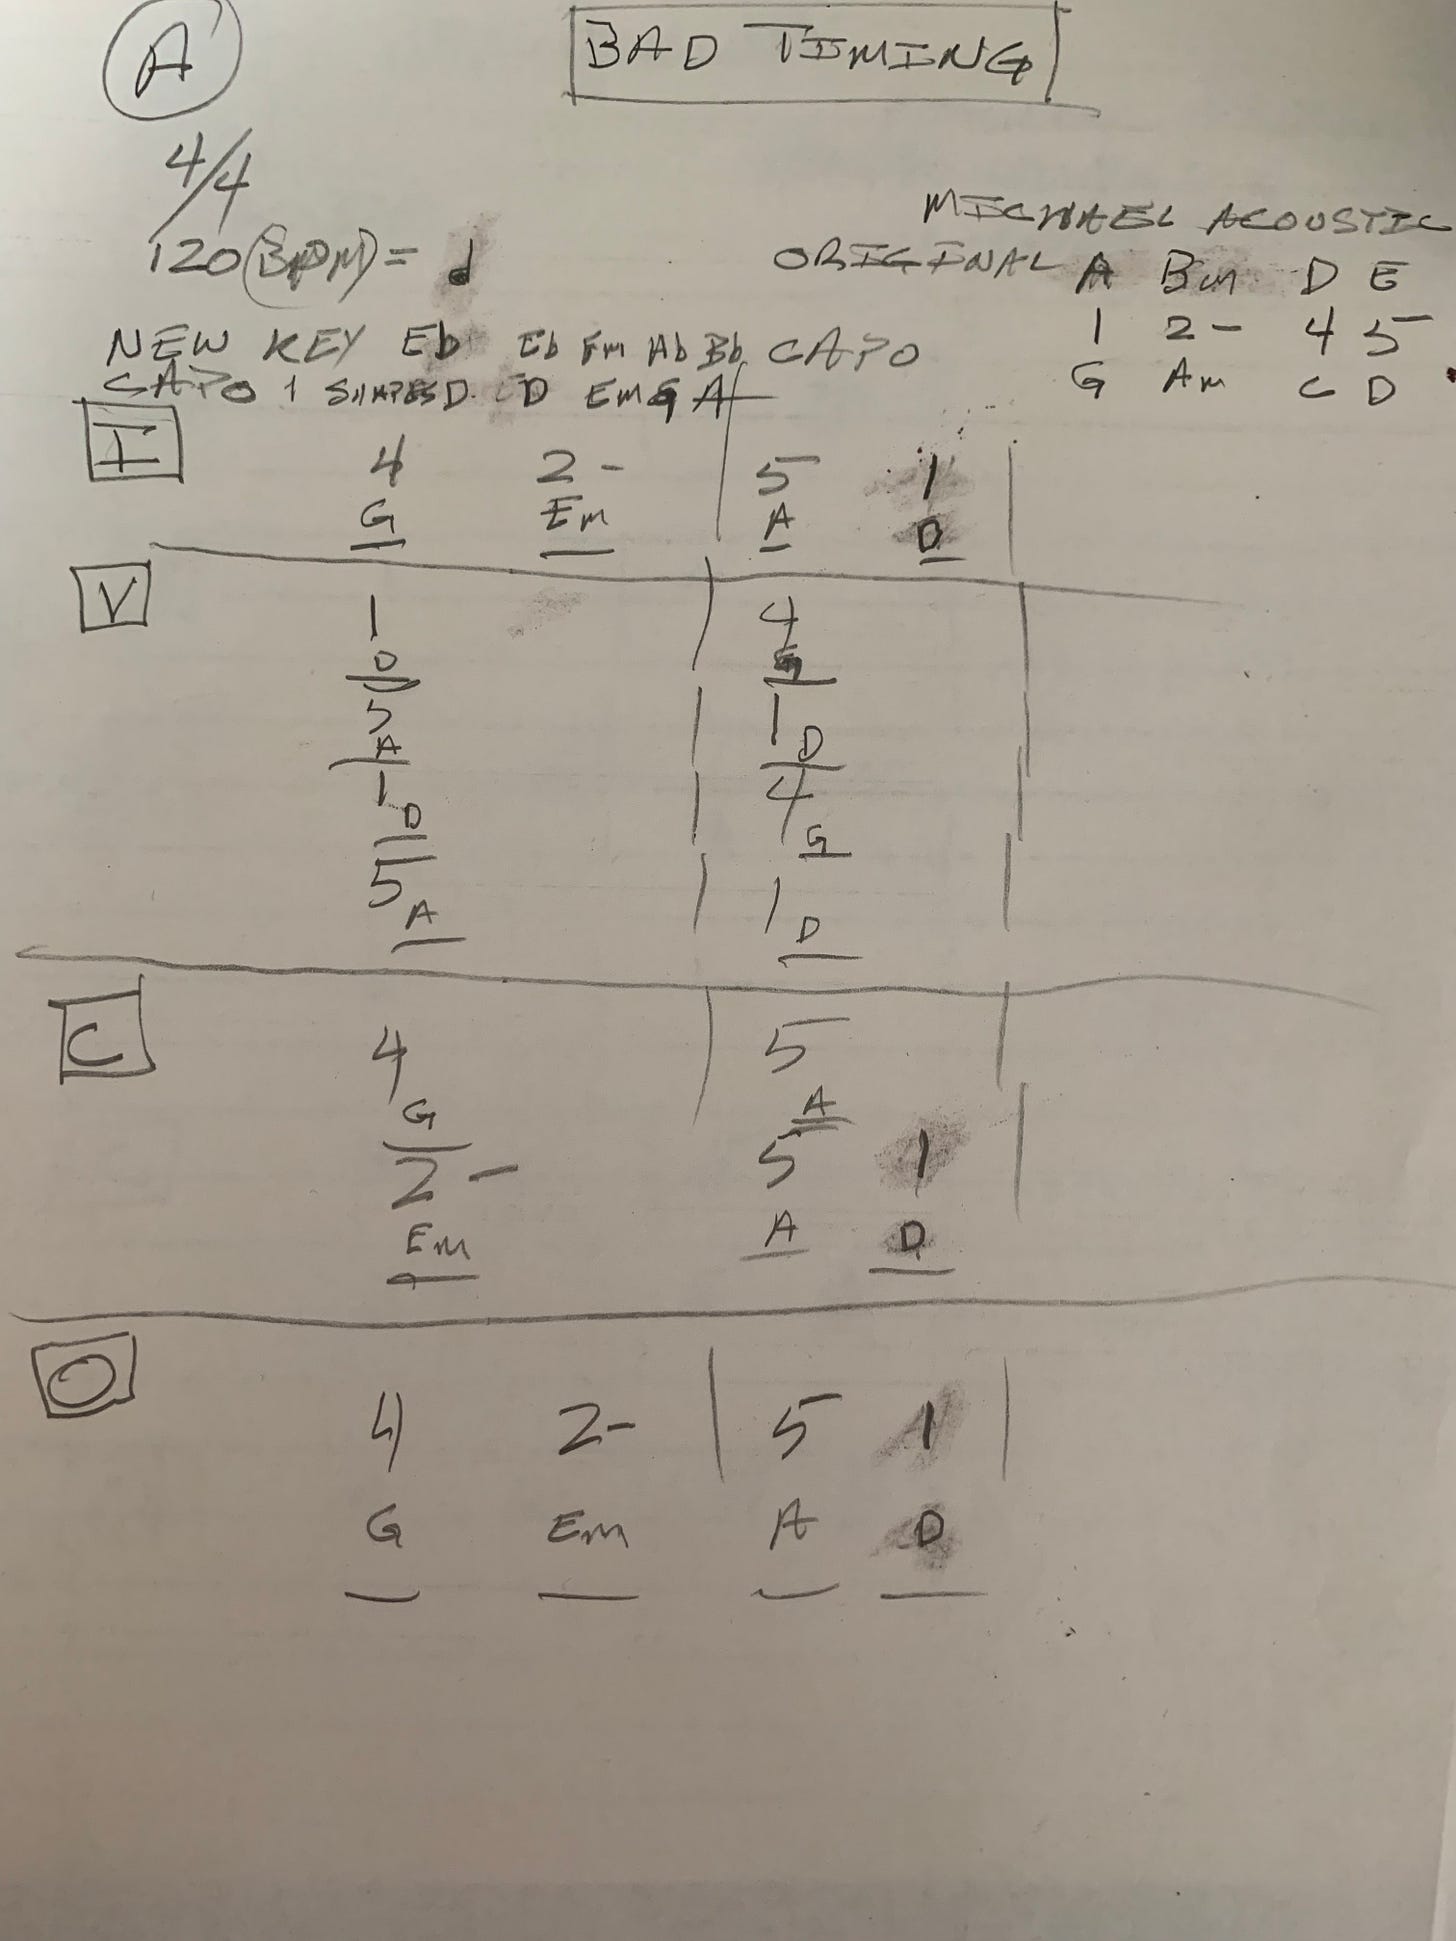 A BAD TIMING
4/4
MICHAEL ACOUSTIC
120 (BPM) = ♩
ORIGINAL A Bm D E
1 2- 4 5
NEW KEY Eb Eb Fm Ab Bb CAPO
G Am C D
CAPO 1 SHAPES D. D Em G A
I 4 2- | 5 1 |
G Em A D
V 1 | 4 |
D G
5 | 1 |
A D
1 | 4 |
D G
5 | 1 |
A D
C 4 | 5 |
G A
2- 5 1 |
Em A D
O 4 2- | 5 1 |
G Em A D